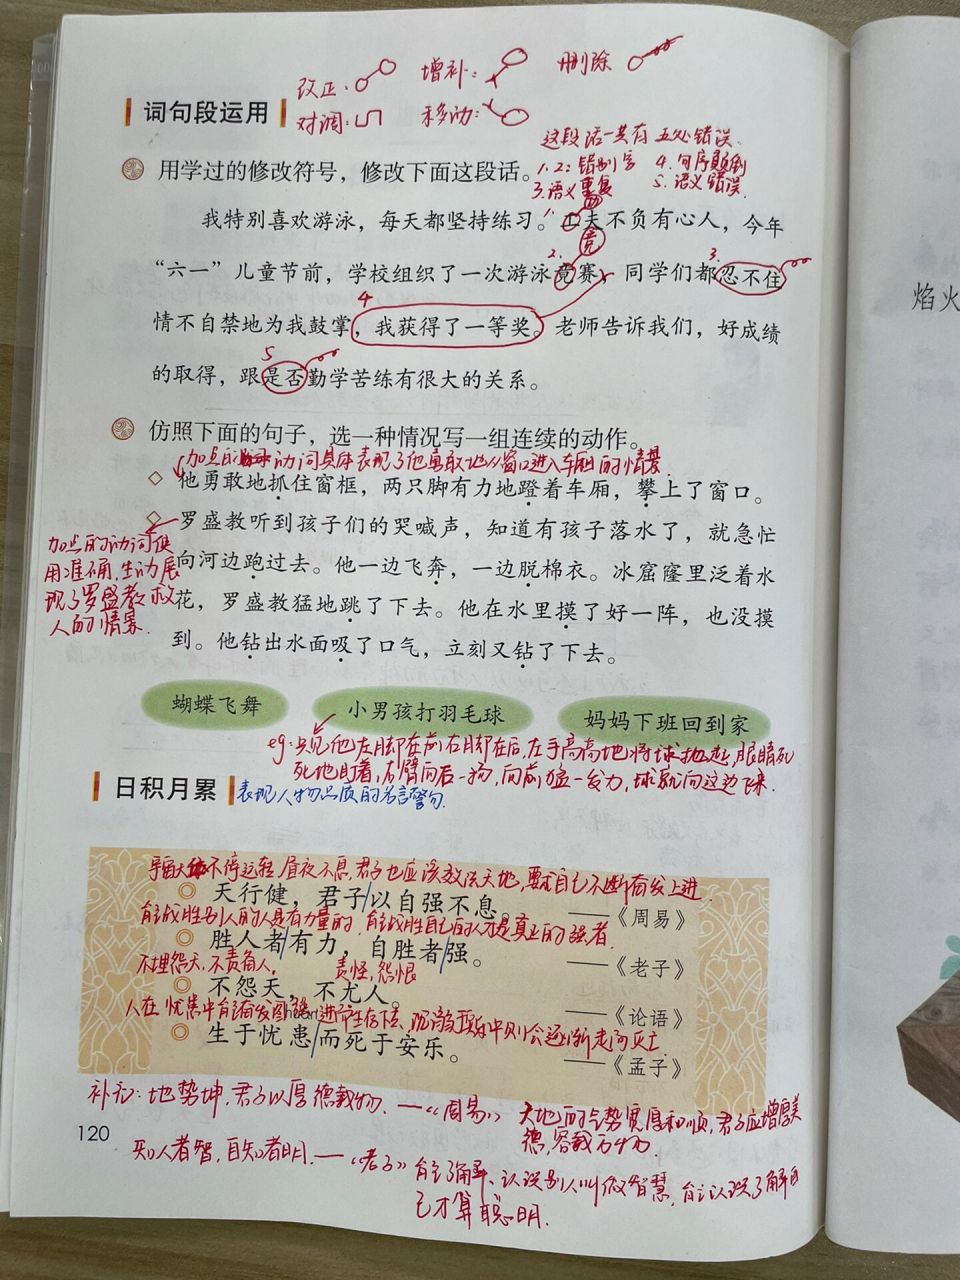 改正: 增补: 删除
词句段运用
对调: 移动:
这段话一共有五处错误。
1.2: 错别字 4.句序颠倒
3.语义重复 5.语义错误.
用学过的修改符号，修改下面这段话。
1.
我特别喜欢游泳，每天都坚持练习。工夫不负有心人，今年
2. 竞 3.
“六一”儿童节前，学校组织了一次游泳竟赛，同学们都忍不住
4
情不自禁地为我鼓掌，我获得了一等奖。老师告诉我们，好成绩
5
的取得，跟是否勤学苦练有很大的关系。
仿照下面的句子，选一种情况写一组连续的动作。
加点的动词具体表现了他勇敢地从窗口进入车厢的情景.
他勇敢地抓住窗框，两只脚有力地蹬着车厢，攀上了窗口。
罗盛教听到孩子们的哭喊声，知道有孩子落水了，就急忙
向河边跑过去。他一边飞奔，一边脱棉衣。冰窟窿里泛着水
花，罗盛教猛地跳了下去。他在水里摸了好一阵，也没摸
到。他钻出水面吸了口气，立刻又钻了下去。
加点的动词使
用准确，生动展
现了罗盛教救
人的情景.
蝴蝶飞舞 小男孩打羽毛球 妈妈下班回到家
eg:只见他左脚在前右脚在后，左手高高地将球抛起，眼睛死
死地盯着，右臂向后一扬，向前猛一发力，球就向这边飞来.
日积月累
表现人物品质的名言警句.
宇宙不停运转，昼夜不息，君子也应该效法天地，要求自己不断奋发上进.
天行健，君子/以自强不息。
——《周易》
能战胜别人的人是有力量的，能战胜自己的人才是真正的强者.
胜人者/有力，自胜者/强。
——《老子》
不埋怨天，不责备人. 责怪，怨恨
不怨天，不尤人。
——《论语》
人在忧患中能奋发图强进而生存下去，沉溺于安乐中则会逐渐走向灭亡.
生于忧患/而死于安乐。
——《孟子》
补充:地势坤，君子以厚德载物.—《周易》 天地的气势宽厚和顺，君子应增厚美
德，容载万物.
120
知人者智，自知者明.—《老子》 能了解、认识别人叫做智慧，能认识了解自
己才算聪明.
焰火